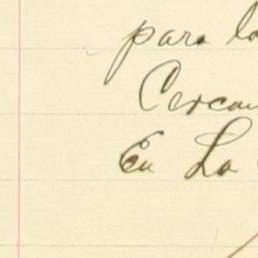 para la
Cercan
En La